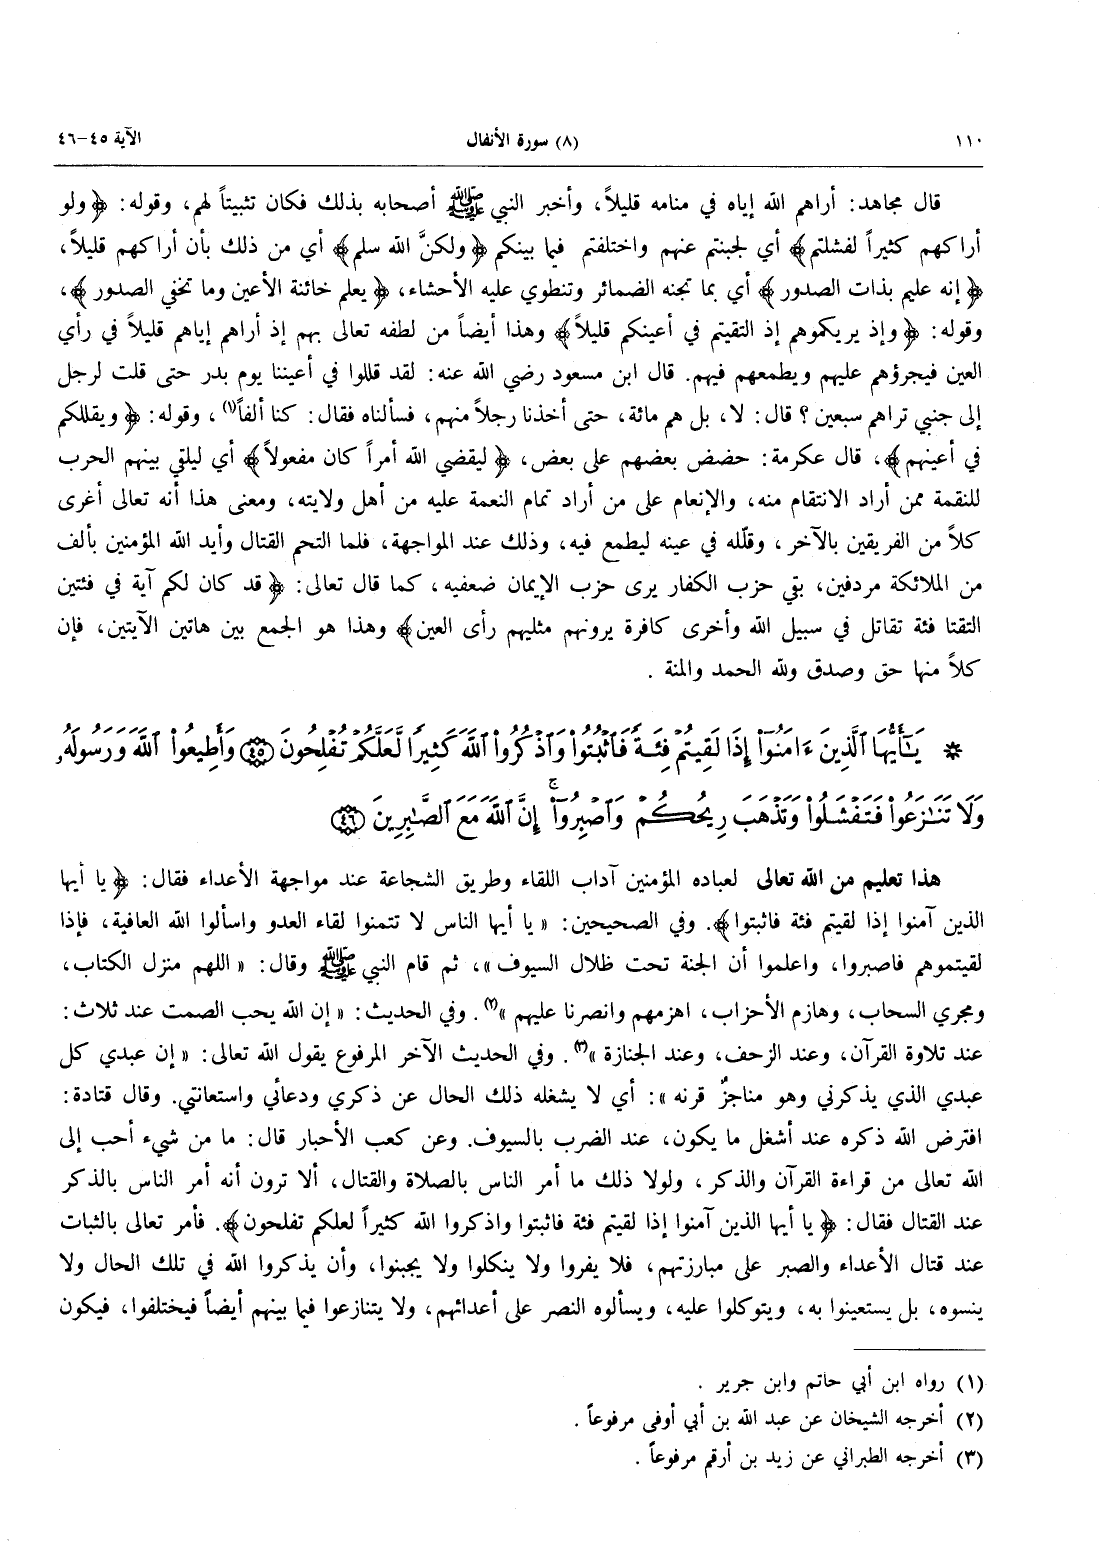 ١١٠ (٨) سورة الأنفال الآية ٤٥-٤٦
قال مجاهد: أراهم الله إياه في منامه قليلاً، وأخبر النبي ﷺ أصحابه بذلك فكان تثبيتاً لهم، وقوله: ﴿ولو
أراكهم كثيراً لفشلتم﴾ أي لجبنتم عنهم واختلفتم فيما بينكم ﴿ولكنَّ الله سلم﴾ أي من ذلك بأن أراكهم قليلاً،
﴿إنه عليم بذات الصدور﴾ أي بما تجنه الضمائر وتنطوي عليه الأحشاء، ﴿يعلم خائنة الأعين وما تخفي الصدور﴾،
وقوله: ﴿وإذ يريكموهم إذ التقيتم في أعينكم قليلاً﴾ وهذا أيضاً من لطفه تعالى بهم إذ أراهم إياهم قليلاً في رأي
العين فيجرؤهم عليهم ويطمعهم فيهم. قال ابن مسعود رضي الله عنه: لقد قللوا في أعيننا يوم بدر حتى قلت لرجل
إلى جنبي تراهم سبعين؟ قال: لا، بل هم مائة، حتى أخذنا رجلاً منهم، فسألناه فقال: كنا ألفاً(١)، وقوله: ﴿ويقللكم
في أعينهم﴾، قال عكرمة: حضض بعضهم على بعض، ﴿ليقضي الله أمراً كان مفعولاً﴾ أي ليلقي بينهم الحرب
للنقمة ممن أراد الانتقام منه، والإنعام على من أراد تمام النعمة عليه من أهل ولايته، ومعنى هذا أنه تعالى أغرى
كلاً من الفريقين بالآخر، وقلّله في عينه ليطمع فيه، وذلك عند المواجهة، فلما التحم القتال وأيد الله المؤمنين بألف
من الملائكة مردفين، بقي حزب الكفار يرى حزب الإيمان ضعفيه، كما قال تعالى: ﴿قد كان لكم آية في فئتين
التقتا فئة تقاتل في سبيل الله وأخرى كافرة يرونهم مثليهم رأى العين﴾ وهذا هو الجمع بين هاتين الآيتين، فإن
كلاً منها حق وصدق ولله الحمد والمنة.
۞ يَٰٓأَيُّهَا ٱلَّذِينَ ءَامَنُوٓا۟ إِذَا لَقِيتُمْ فِئَةً فَٱثْبُتُوا۟ وَٱذْكُرُوا۟ ٱللَّهَ كَثِيرًا لَّعَلَّكُمْ تُفْلِحُونَ ﴿٤٥﴾ وَأَطِيعُوا۟ ٱللَّهَ وَرَسُولَهُۥ
وَلَا تَنَٰزَعُوا۟ فَتَفْشَلُوا۟ وَتَذْهَبَ رِيحُكُمْ ۖ وَٱصْبِرُوٓا۟ ۚ إِنَّ ٱللَّهَ مَعَ ٱلصَّٰبِرِينَ ﴿٤٦﴾
هذا تعليم من الله تعالى لعباده المؤمنين آداب اللقاء وطريق الشجاعة عند مواجهة الأعداء فقال: ﴿يا أيها
الذين آمنوا إذا لقيتم فئة فاثبتوا﴾. وفي الصحيحين: «يا أيها الناس لا تتمنوا لقاء العدو واسألوا الله العافية، فإذا
لقيتموهم فاصبروا، واعلموا أن الجنة تحت ظلال السيوف»، ثم قام النبي ﷺ وقال: «اللهم منزل الكتاب،
ومجري السحاب، وهازم الأحزاب، اهزمهم وانصرنا عليهم»(٢). وفي الحديث: «إن الله يحب الصمت عند ثلاث:
عند تلاوة القرآن، وعند الزحف، وعند الجنازة»(٣). وفي الحديث الآخر المرفوع يقول الله تعالى: «إن عبدي كل
عبدي الذي يذكرني وهو مناجزٌ قرنه»: أي لا يشغله ذلك الحال عن ذكري ودعائي واستعانتي. وقال قتادة:
افترض الله ذكره عند أشغل ما يكون، عند الضرب بالسيوف. وعن كعب الأحبار قال: ما من شيء أحب إلى
الله تعالى من قراءة القرآن والذكر، ولولا ذلك ما أمر الناس بالصلاة والقتال، ألا ترون أنه أمر الناس بالذكر
عند القتال فقال: ﴿يا أيها الذين آمنوا إذا لقيتم فئة فاثبتوا واذكروا الله كثيراً لعلكم تفلحون﴾. فأمر تعالى بالثبات
عند قتال الأعداء والصبر على مبارزتهم، فلا يفروا ولا ينكلوا ولا يجبنوا، وأن يذكروا الله في تلك الحال ولا
ينسوه، بل يستعينوا به، ويتوكلوا عليه، ويسألوه النصر على أعدائهم، ولا يتنازعوا فيما بينهم أيضاً فيختلفوا، فيكون
(١) رواه ابن أبي حاتم وابن جرير.
(٢) أخرجه الشيخان عن عبد الله بن أبي أوفى مرفوعاً.
(٣) أخرجه الطبراني عن زيد بن أرقم مرفوعاً.